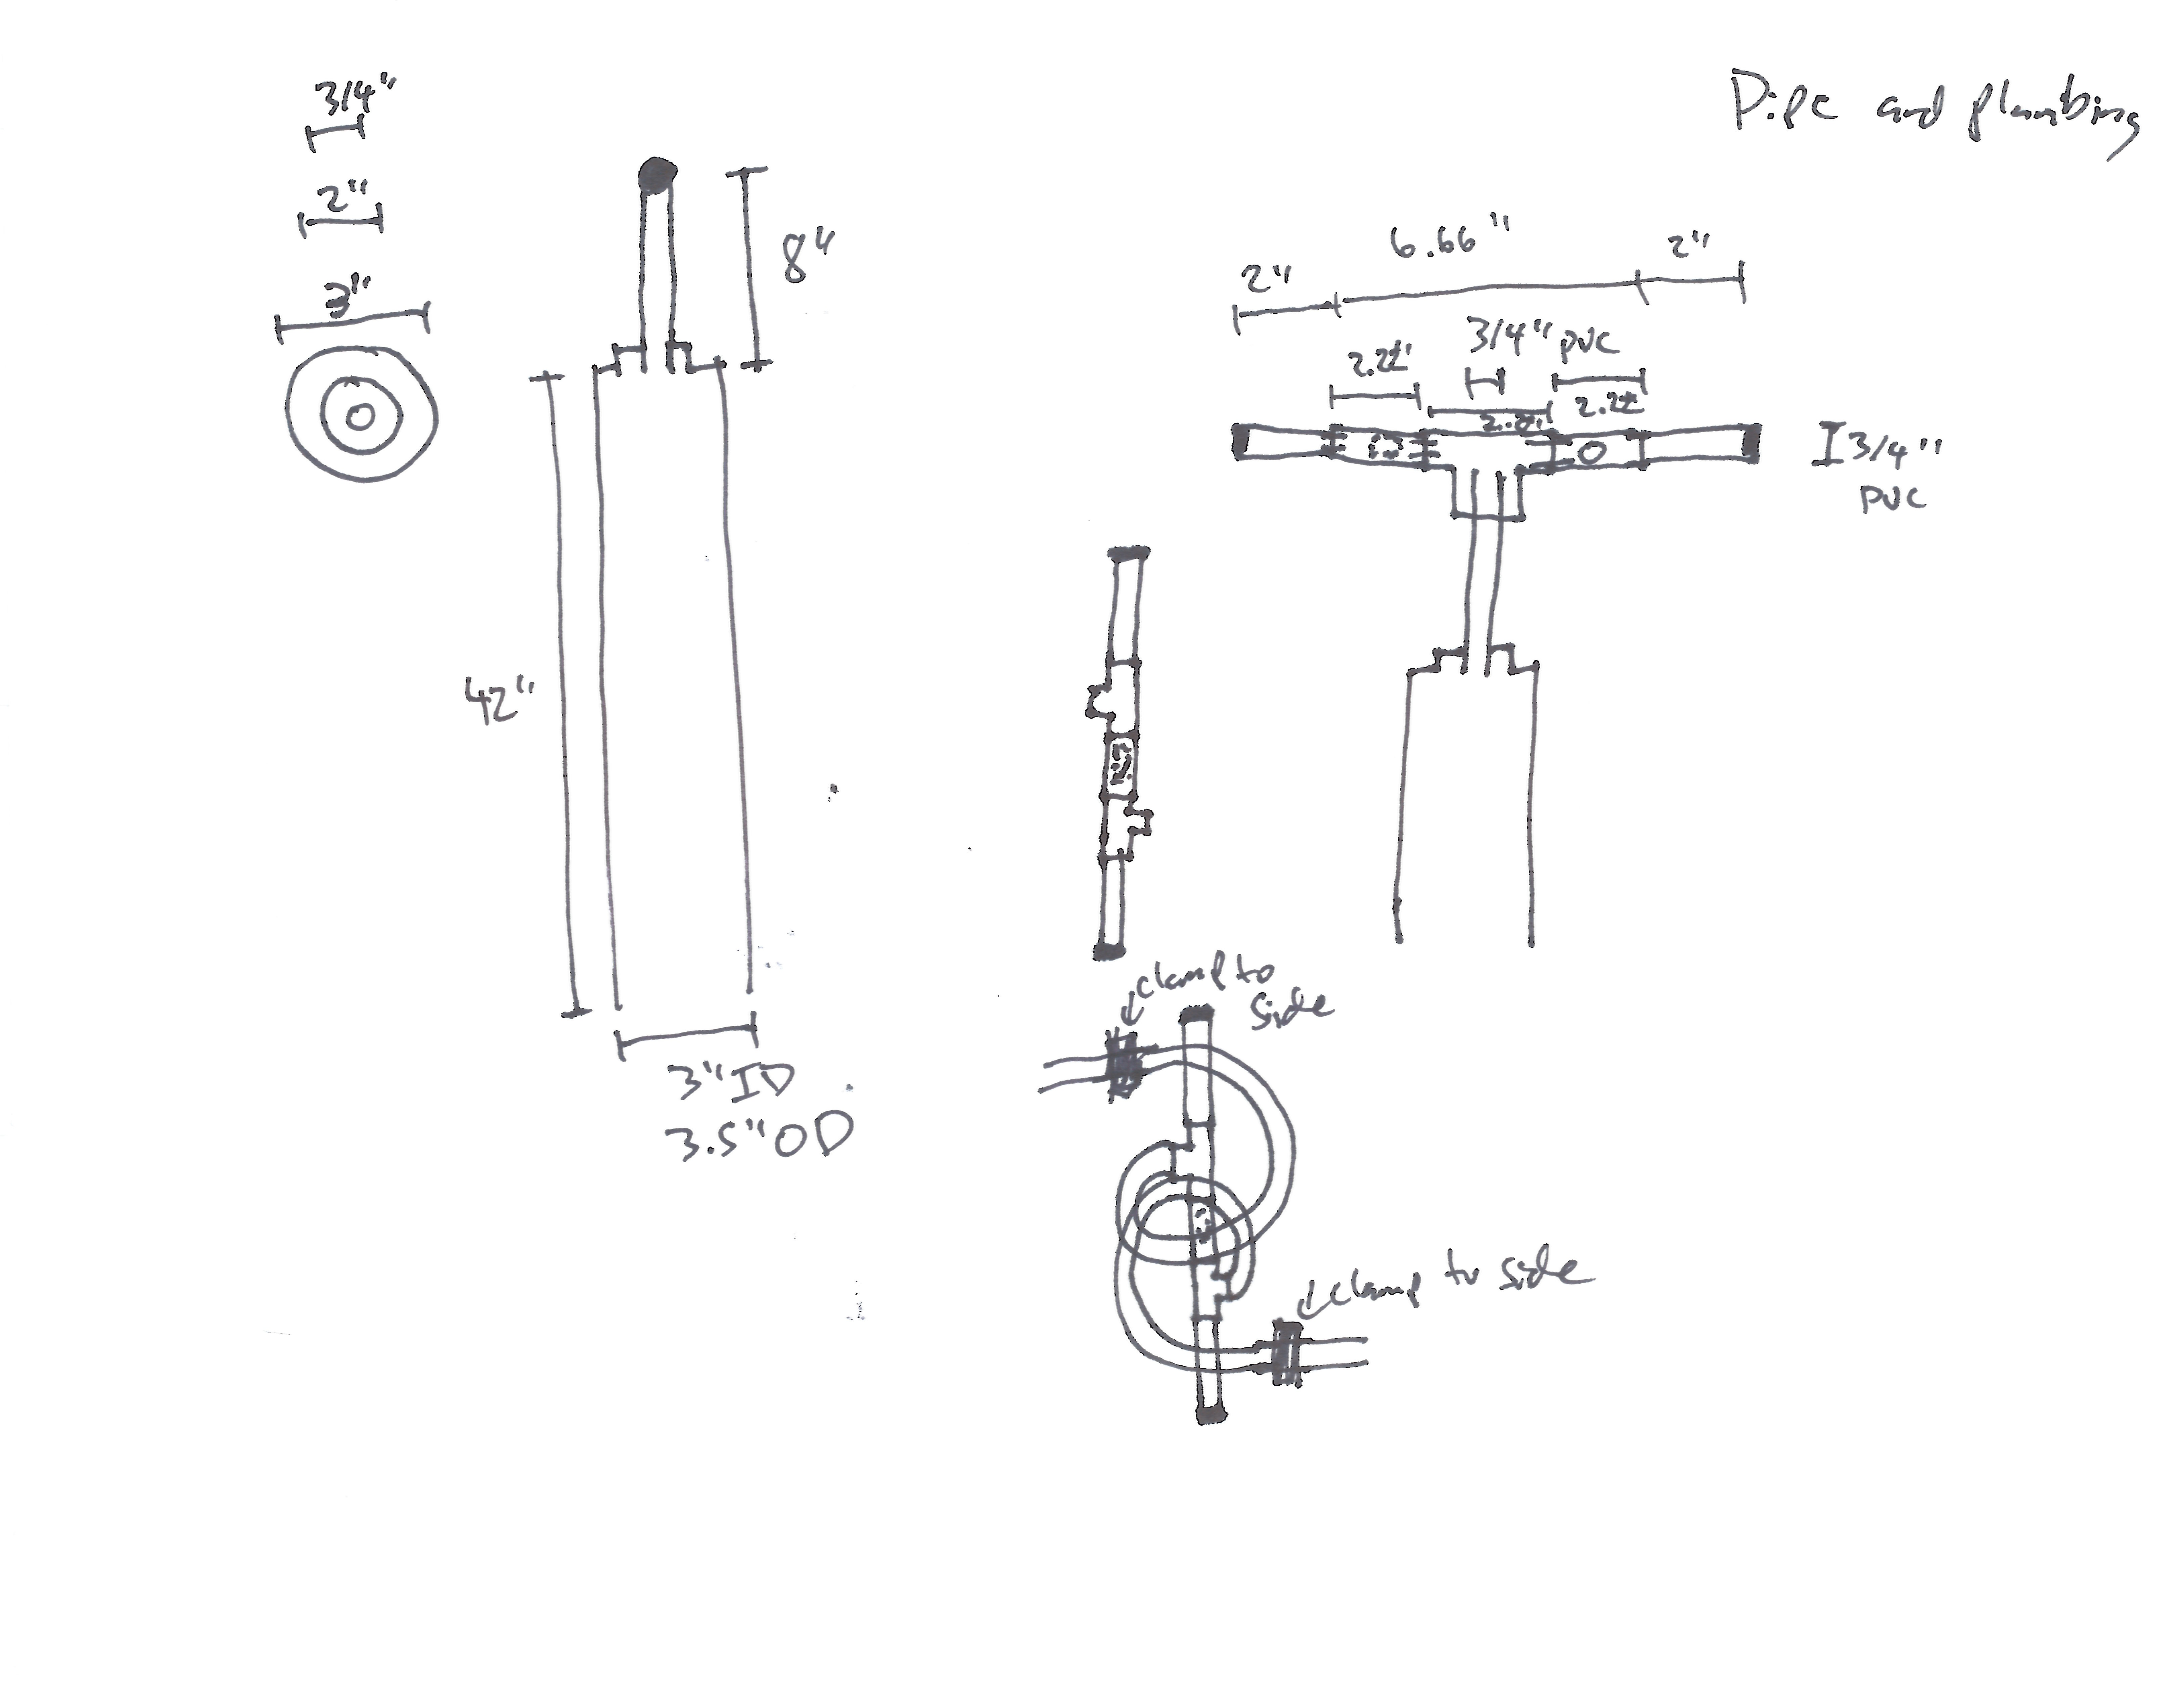 Pipe and plumbing
3/4"
2"
3"
8"
42"
3" ID
3.5" OD
6.66"
2"
2"
3/4" PVC
2.22"
2.22"
2.22
3/4"
PVC
clamp to
side
clamp to side